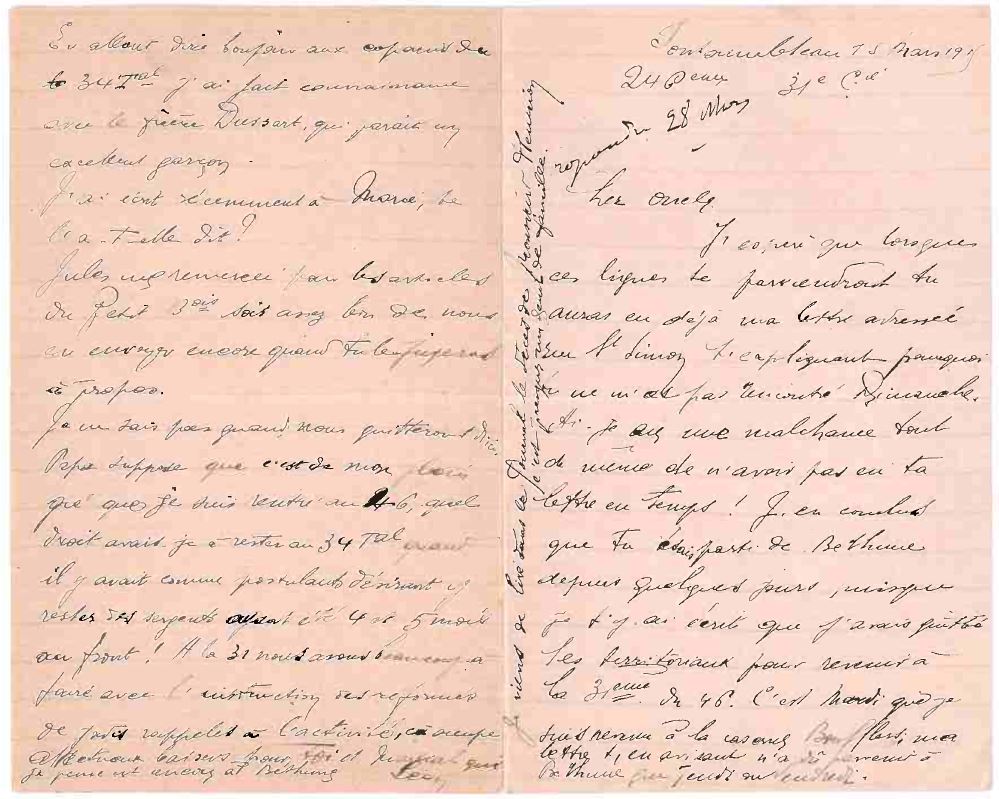 Fontainebleau 15 Mars 1915
24 Peau 31e Cie
répondu 28 Mars
Cher oncle,
J'espère que lorsque
ces lignes te parviendront tu
auras eu déjà ma lettre adressée
rue St Simon t'expliquant pourquoi
tu ne m'as pas rencontré Dimanche.
Ai-je eu une malchance tout
de même de n'avoir pas eu ta
lettre en temps ! J'en conclus
que tu étais parti de Béthune
depuis quelques jours, puisque
je t'y ai écrit que j'avais quitté
les territoriaux pour revenir à
la 31ème du 46. C'est Mardi que je
suis revenu à la caserne ma
lettre t'en avisant n'a dû parvenir à
Béthune que jeudi ou vendredi.
En allant dire bonjour aux copains du
34 Tal j'ai fait connaissance
avec le frère Dussart, qui paraît un
excellent garçon.
J'ai écrit récemment à Marie, te
l'a-t-elle dit ?
Jules me remercie pour les articles
du Petit sois assez bon de nous
en envoyer encore quand tu le jugeras
à propos.
Je ne sais pas quand nous quitterons d'ici.
Papa suppose que c'est de mon
gré que je suis rentré au 46, quel
droit avais-je à rester au 34 Tal quand
il y avait comme postulants désirant y
rester des sergents ayant été 4 et 5 mois
au front ! A la 31 nous avons beaucoup à
faire avec l'instruction des réformés
de jadis rappelés à l'activité, ça occupe
Affectueux baisers pour toi et Maman qui
je pense est encore à Béthune
Je viens de lire dans le Journal le décès de Monsieur Hennion
de famille.